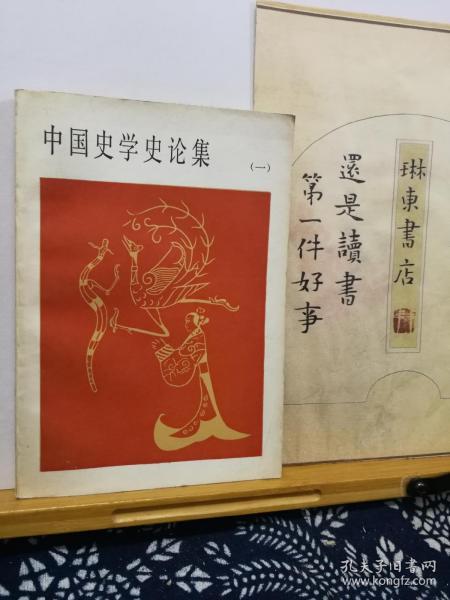 中国史学史论集
(一)
還是讀書
第一件好事
琳東書店
孔夫子旧书网
kongfz.com